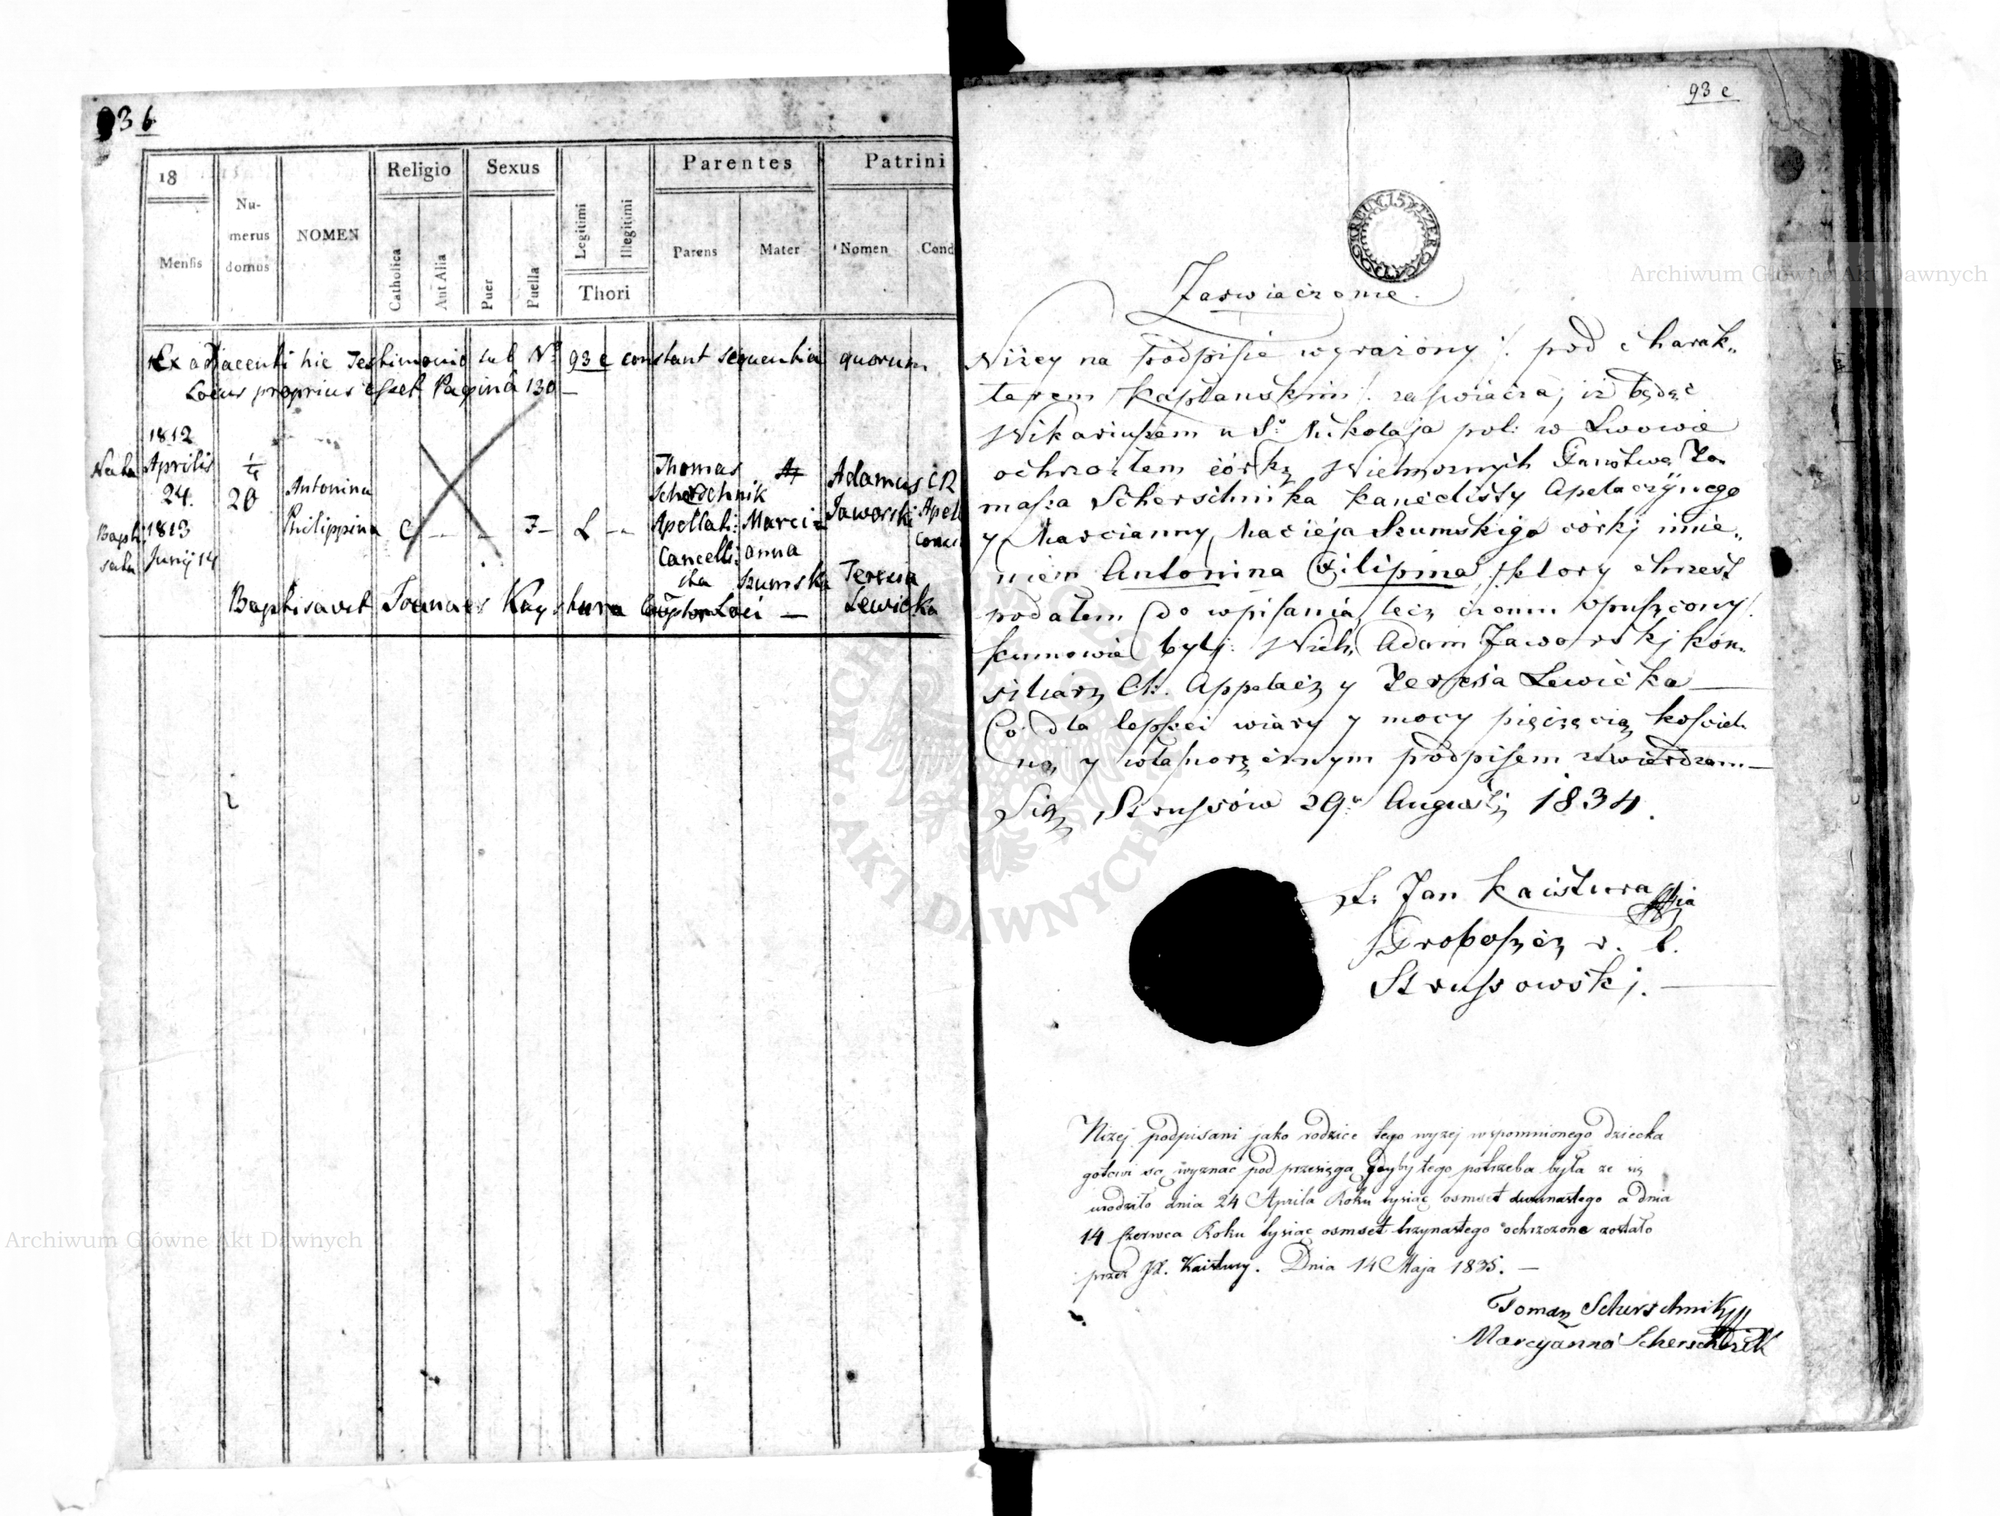 93 b
18
Mensis
Nu-
merus
domus
NOMEN
Religio
Catholica
Aut Alia
Sexus
Puer
Puella
Legitimi
Illegitimi
Thori
Parentes
Parens
Mater
Patrini
Nomen
Cond
Ex adjacenti hic Testimonio sub N° 93 c constant sequentia quorum
Locus proprius esset Pagina 130 –
Nata
1812
Aprilis
24.
Bapti
sata
1813
Junij 14
20
Antonina
Philippina
C
L
Thomas
Scherschnik
Apellat:
Cancelli
sta
Marci=
anna
Szumska
Adamus
Jaworski
Teresia
Lewicka
CR
Apell
Baptisavit Joannes Kaystura Loci —
93 c
Zaswiadczenie.
Niżey na Podpisie wyrażony /: pod charak=
terem Kapłanskim :/ zaswiadcza, iż będąc
Wikariuszem u Sº Mikołaja pol: w Lwowie
ochrzciłem córkę Wielmożnych Państwa To=
masza Scherschnika kancelisty Apelacyjnego
y Marcianny, Macieja Szumskiego córki imie=
niem Antonina Filipina /: ktory chrzest
podałem do wpisania, lecz opuszczony :/
kumowie byli: Wielm Adam Jaworski kon=
siliarz Ck. Appelacy y Teressa Lewicka —
Co dla lepszei wiary y mocy pieczęcią kościel
ną y własnoręcznym podpisem stwierdzam —
Sig Strussów 29º Augusti 1834.
X. Jan Kaistura
Proboszcz r. l.
Strussowski. —
Niżej podpisani jako rodzice tego wyżej wspomnionego dziecka
gotowi są wyznać pod przesięgą gdyby tego potrzeba była ze się
urodziło dnia 24 Aprila Roku tysiąc osmset dwunastego a dnia
14 Czerwca Roku tysiąc osmset trzynastego ochrzczone zostało
przez JX. Kaistury. Dnia 14 Maja 1835. —
Tomasz Scherschnik
Marcyanna Scherschnik
Archiwum Główne Akt Dawnych
Archiwum Główne Akt Dawnych